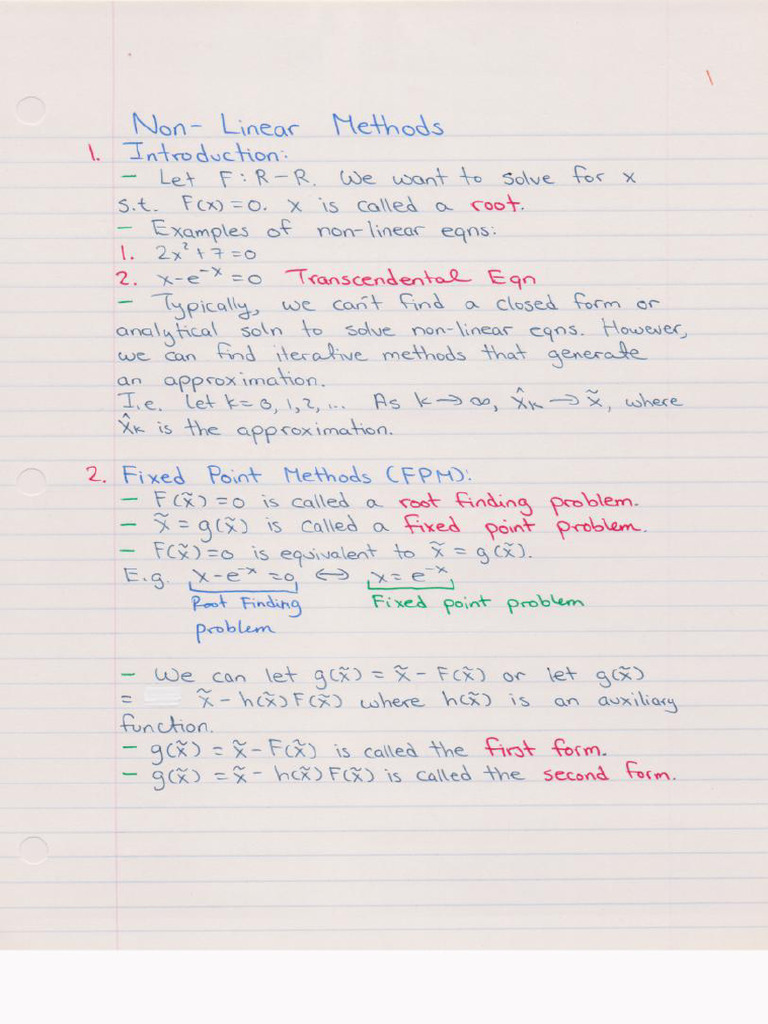 1
Non-Linear Methods
1. Introduction:
- Let F: R-R. We want to solve for x
s.t. F(x)=0. x is called a root.
- Examples of non-linear eqns:
1. 2x²+7=0
2. x-e⁻ˣ=0 Transcendental Eqn
- Typically, we can't find a closed form or
analytical soln to solve non-linear eqns. However,
we can find iterative methods that generate
an approximation.
I.e. Let k=0,1,2,... As k→∞, x̂ₖ→x̃, where
x̂ₖ is the approximation.
2. Fixed Point Methods (FPM):
- F(x̃)=0 is called a root finding problem.
- x̃=g(x̃) is called a fixed point problem.
- F(x̃)=0 is equivalent to x̃=g(x̃).
E.g. x-e⁻ˣ=0 ↔ x=e⁻ˣ
Root Finding Fixed point problem
problem
- We can let g(x̃) = x̃ - F(x̃) or let g(x̃)
= x̃ - h(x̃)F(x̃) where h(x̃) is an auxiliary
function.
- g(x̃) = x̃-F(x̃) is called the first form.
- g(x̃) = x̃ - h(x̃)F(x̃) is called the second form.